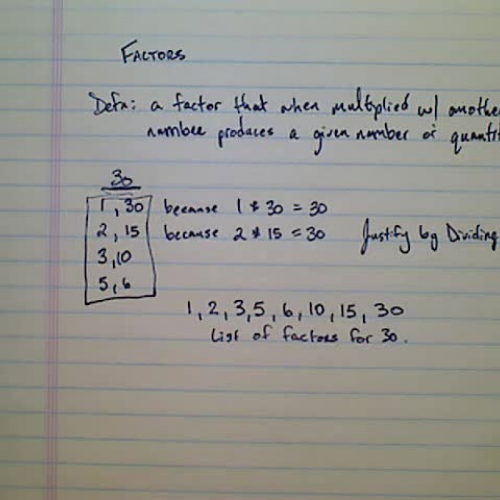 FACTORS
Defn: a factor that when multiplied w/ anothe
number produces a given number or quantit
30
1, 30 because 1 * 30 = 30
2, 15 because 2 * 15 = 30 Justify by Dividing
3,10
5,6
1, 2, 3,5, 6, 10, 15, 30
List of factors for 30.